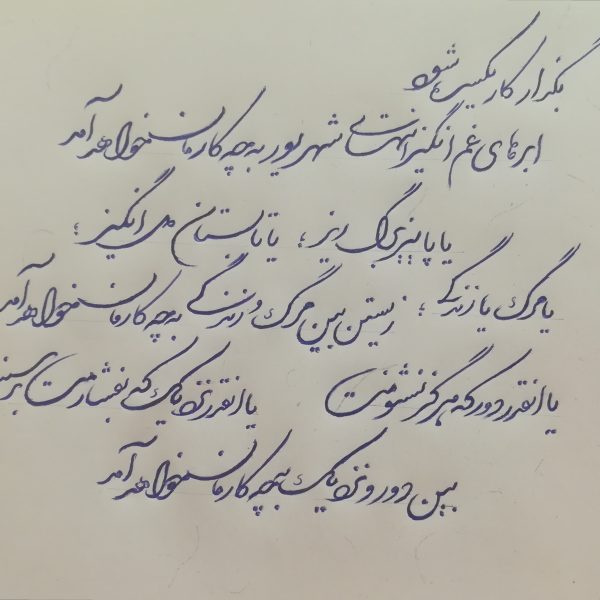 بگذار کار یکسره شود
ابرهای غم انگیز انتهای شهریور به چه کارمان خواهد آمد
یا پاییز برگ ریز ؛ یا تابستان دل انگیز ؛
یا مرگ یا زندگی ؛ زیستن بین مرگ و زندگی به چه کارمان خواهد آمد
یا انقدر دور که هرگز نبینمت یا انقدر نزدیک که بفشارمت بر سینه
بین دور و نزدیک به چه کارمان خواهد آمد